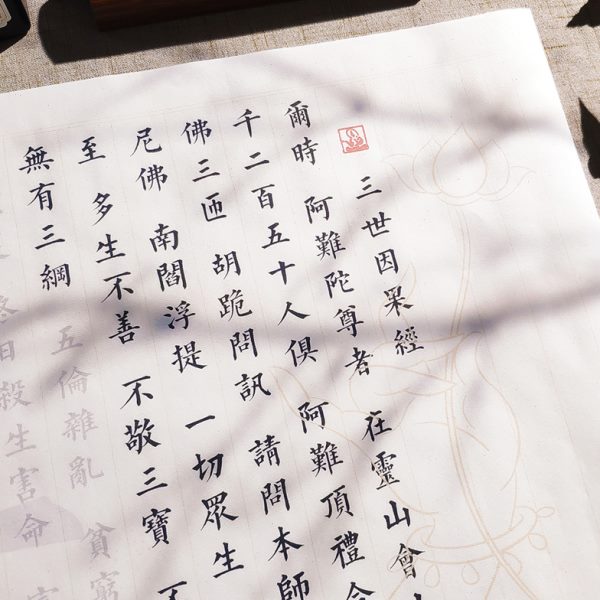 三世因果經
爾時 阿難陀尊者 在靈山會
千二百五十人俱 阿難頂禮
佛三匝 胡跪問訊 請問本師
尼佛 南閻浮提 一切眾生
至 多生不善 不敬三寶 不
無有三綱 五倫雜亂 貧窮
終日殺生害命